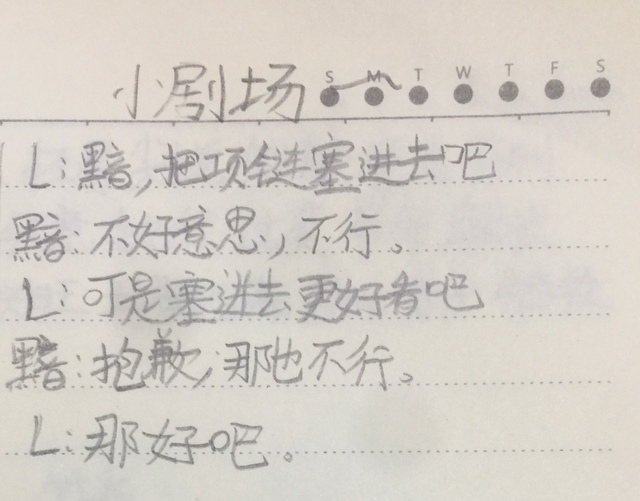 小剧场 S M T W T F S
L:黯,把项链塞进去吧
黯:不好意思,不行。
L:可是塞进去更好看吧
黯:抱歉,那也不行。
L:那好吧。